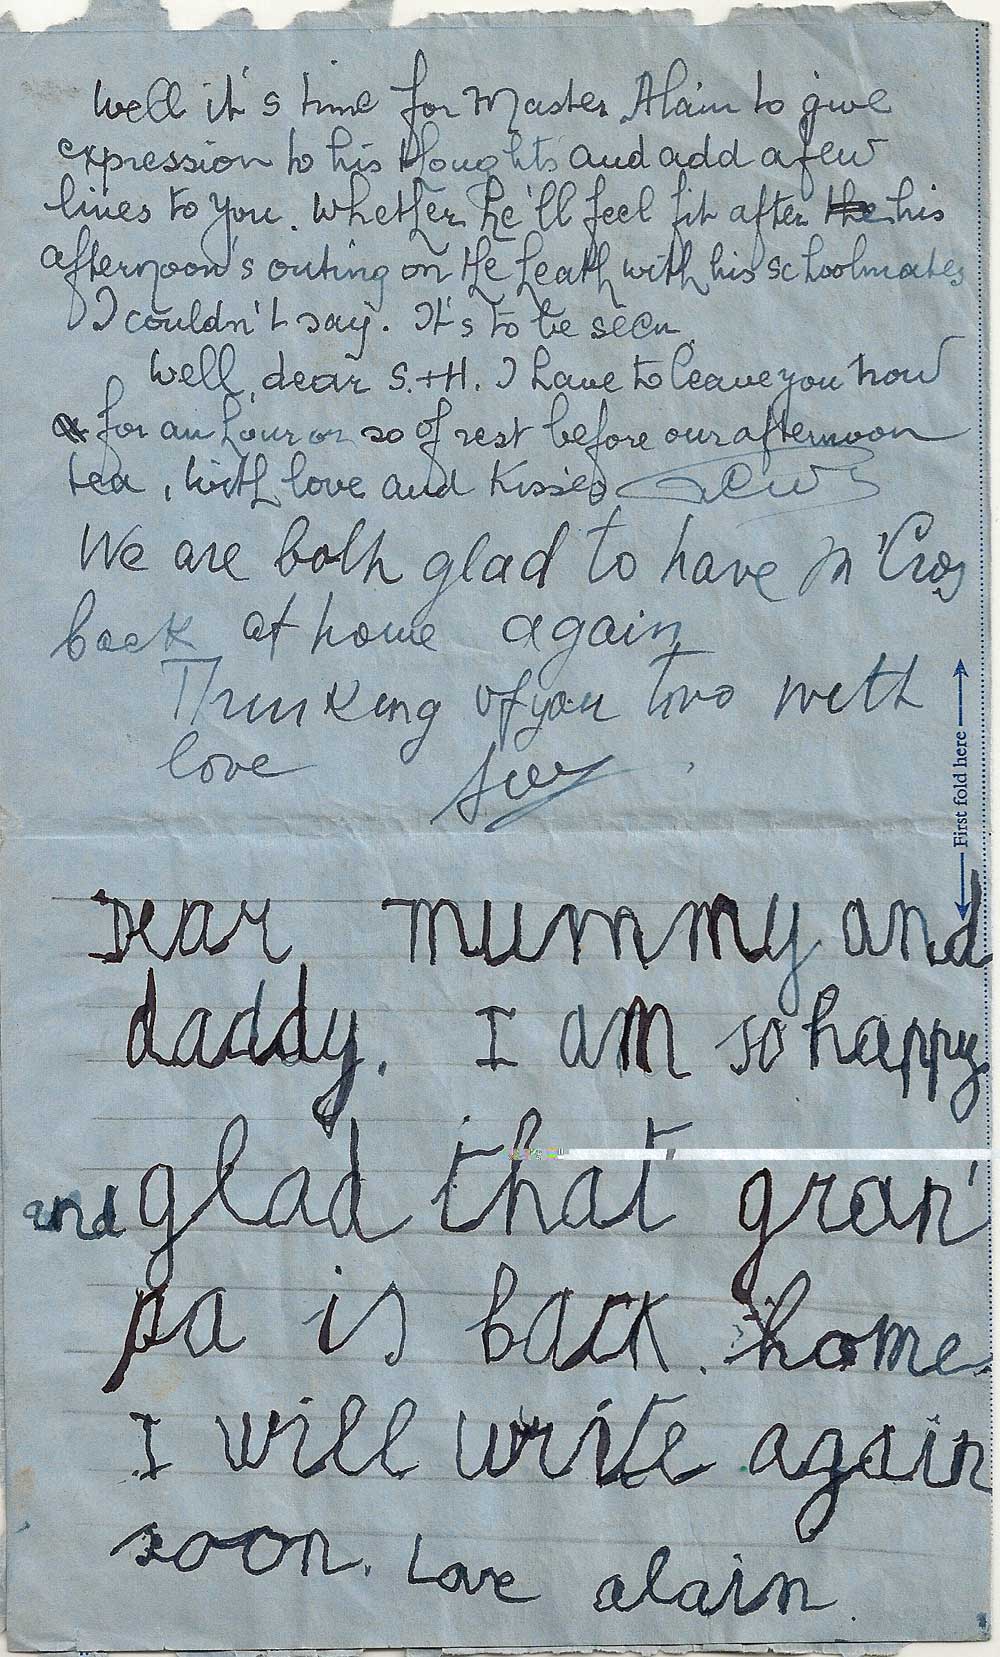 Well it's time for Master Alain to give
expression to his thoughts and add a few
lines to you. Whether he'll feel fit after the his
afternoon's outing on the heath with his schoolmates
I couldn't say. It's to be seen
Well, dear S.+H. I have to leave you now
for an hour or so of rest before our afternoon
tea, with love and kisses
We are both glad to have
back at home again
Thinking of you two with
love
First fold here
Dear mummy and
daddy. I am so happy
and glad that gran'
pa is back. home
I will write again
soon. Love alain.